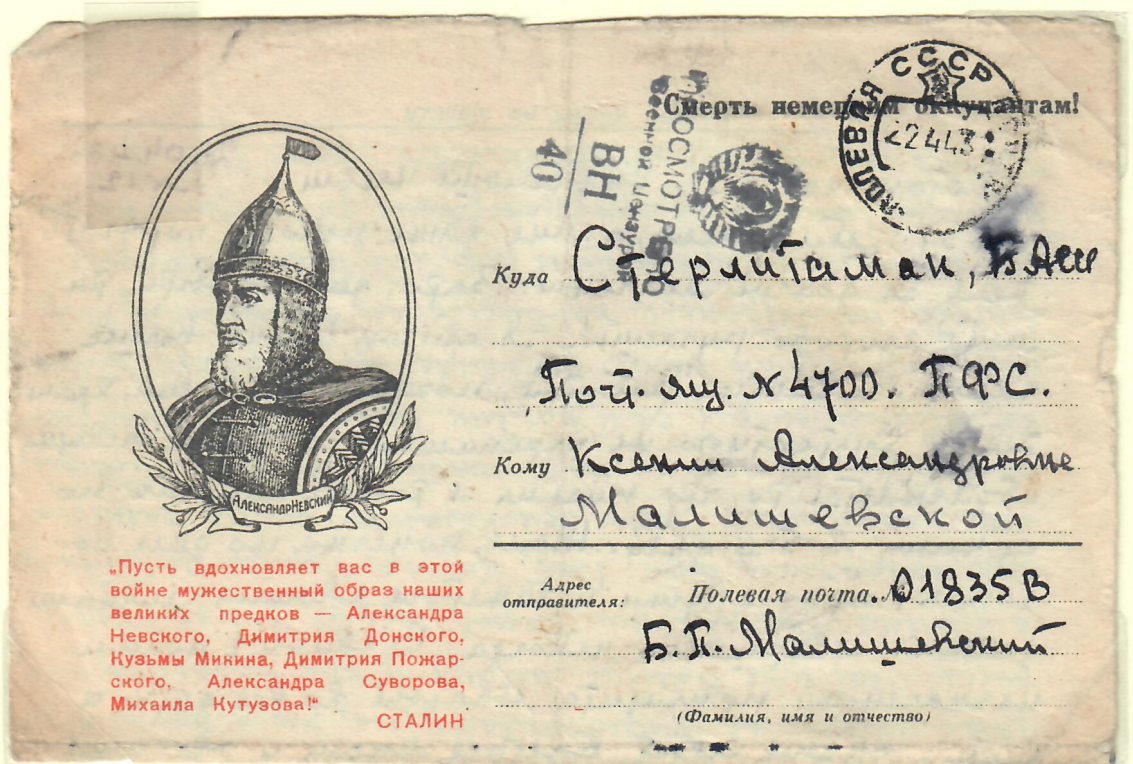 Смерть немецким оккупантам!
ПОЛЕВАЯ СССР
22443
ПРОСМОТРЕНО
Военной Цензурой
ВН
40
Куда Стерлитамак, БАШ
Почт. ящ. N 4700. ПФС.
Кому Ксении Александровне
Малишевской
Адрес
отправителя:
Полевая почта. 01835В
Б.П. Малишевский
(Фамилия, имя и отчество)
АЛЕКСАНДР НЕВСКИЙ
„Пусть вдохновляет вас в этой
войне мужественный образ наших
великих предков — Александра
Невского, Димитрия Донского,
Кузьмы Минина, Димитрия Пожар-
ского, Александра Суворова,
Михаила Кутузова!“
СТАЛИН